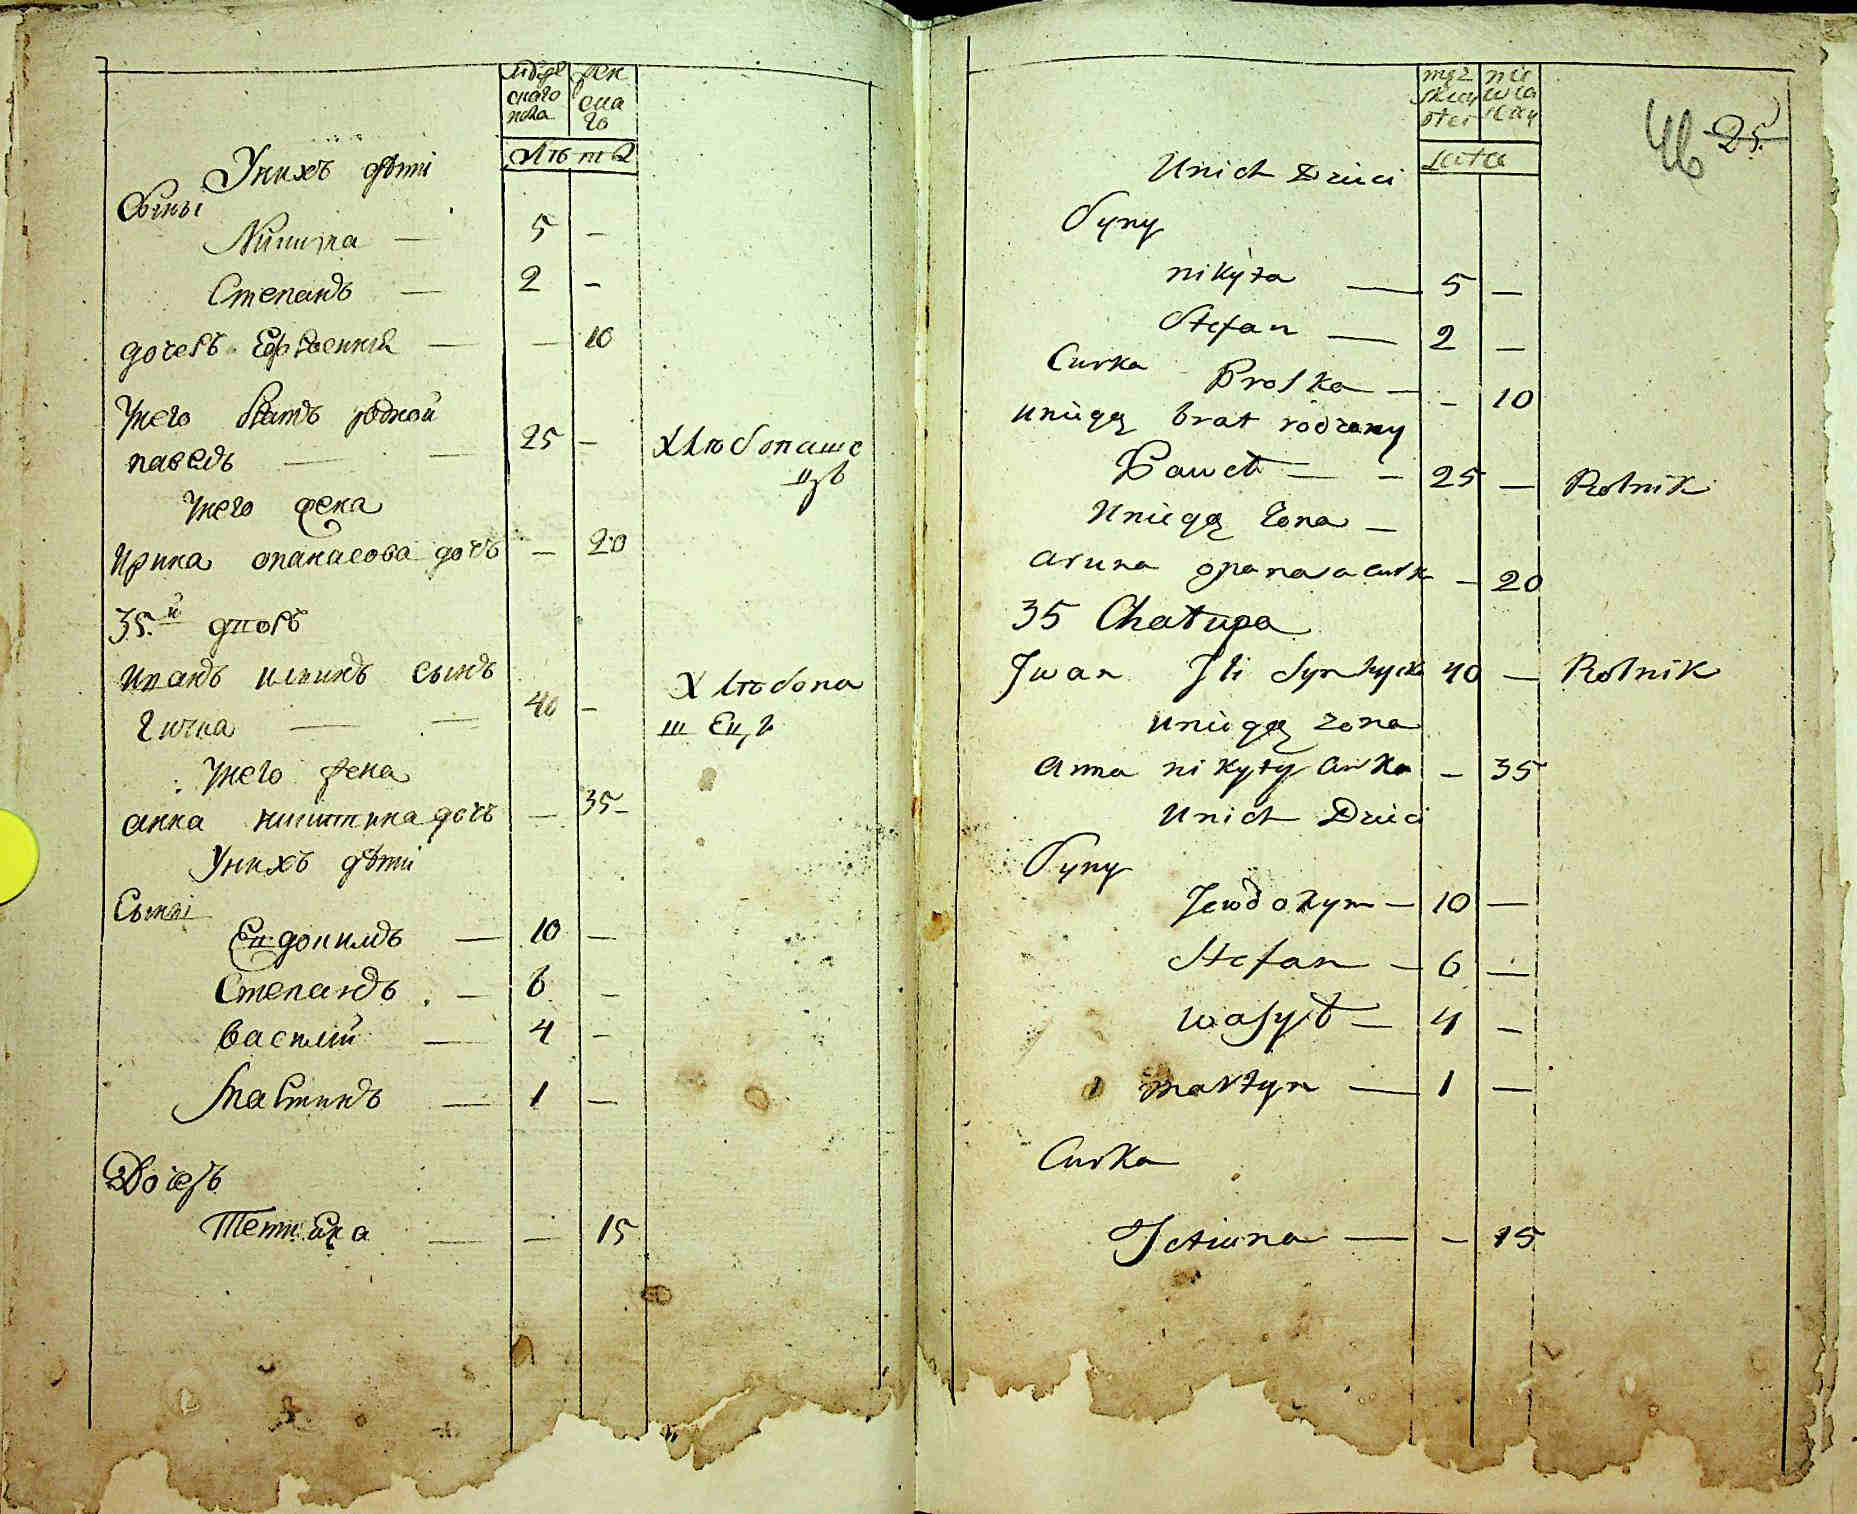 мужескаго пола
женскаго
Лѣта
Унихъ дѣти
Сыны
Никита — 5 —
Степанъ — 2 —
дочерь Ефросинія — — 10
Унего братъ родной
павелъ — — 25 — Хлѣбопаше
цъ
Унего жена
Ирина опанасова дочь — 20
35.й дворъ
Иванъ илиинъ сынъ
— — 40 — Хлѣбопа
шецъ
Унего жена
анна никитина дочь — 35 –
Унихъ дѣти
Сыны
Евдокимъ — 10 —
Степанъ — 6 —
василій — 4 —
Мартинъ — 1 —
Дочерь
Тетиана — — 15
męz
skiey
nie
wia
Lata
46 25.
Unich Dzieci
Syny
nikyta — 5 —
Stefan — 2 —
Curka Proska — - 10
uniego brat rodzony
Paweł — - 25 — Rolnik
Uniego żona —
aryna opanasa curk - 20
35 Chałupa
Jwan Jli Syn 40 — Rolnik
uniego zona
anna nikyty curka - 35
Unich Dzieci
Syny
Jewdokym — 10 —
Stefan — 6 —
wasył — 4 —
martyn — 1 —
Curka
Tetiana — - 15